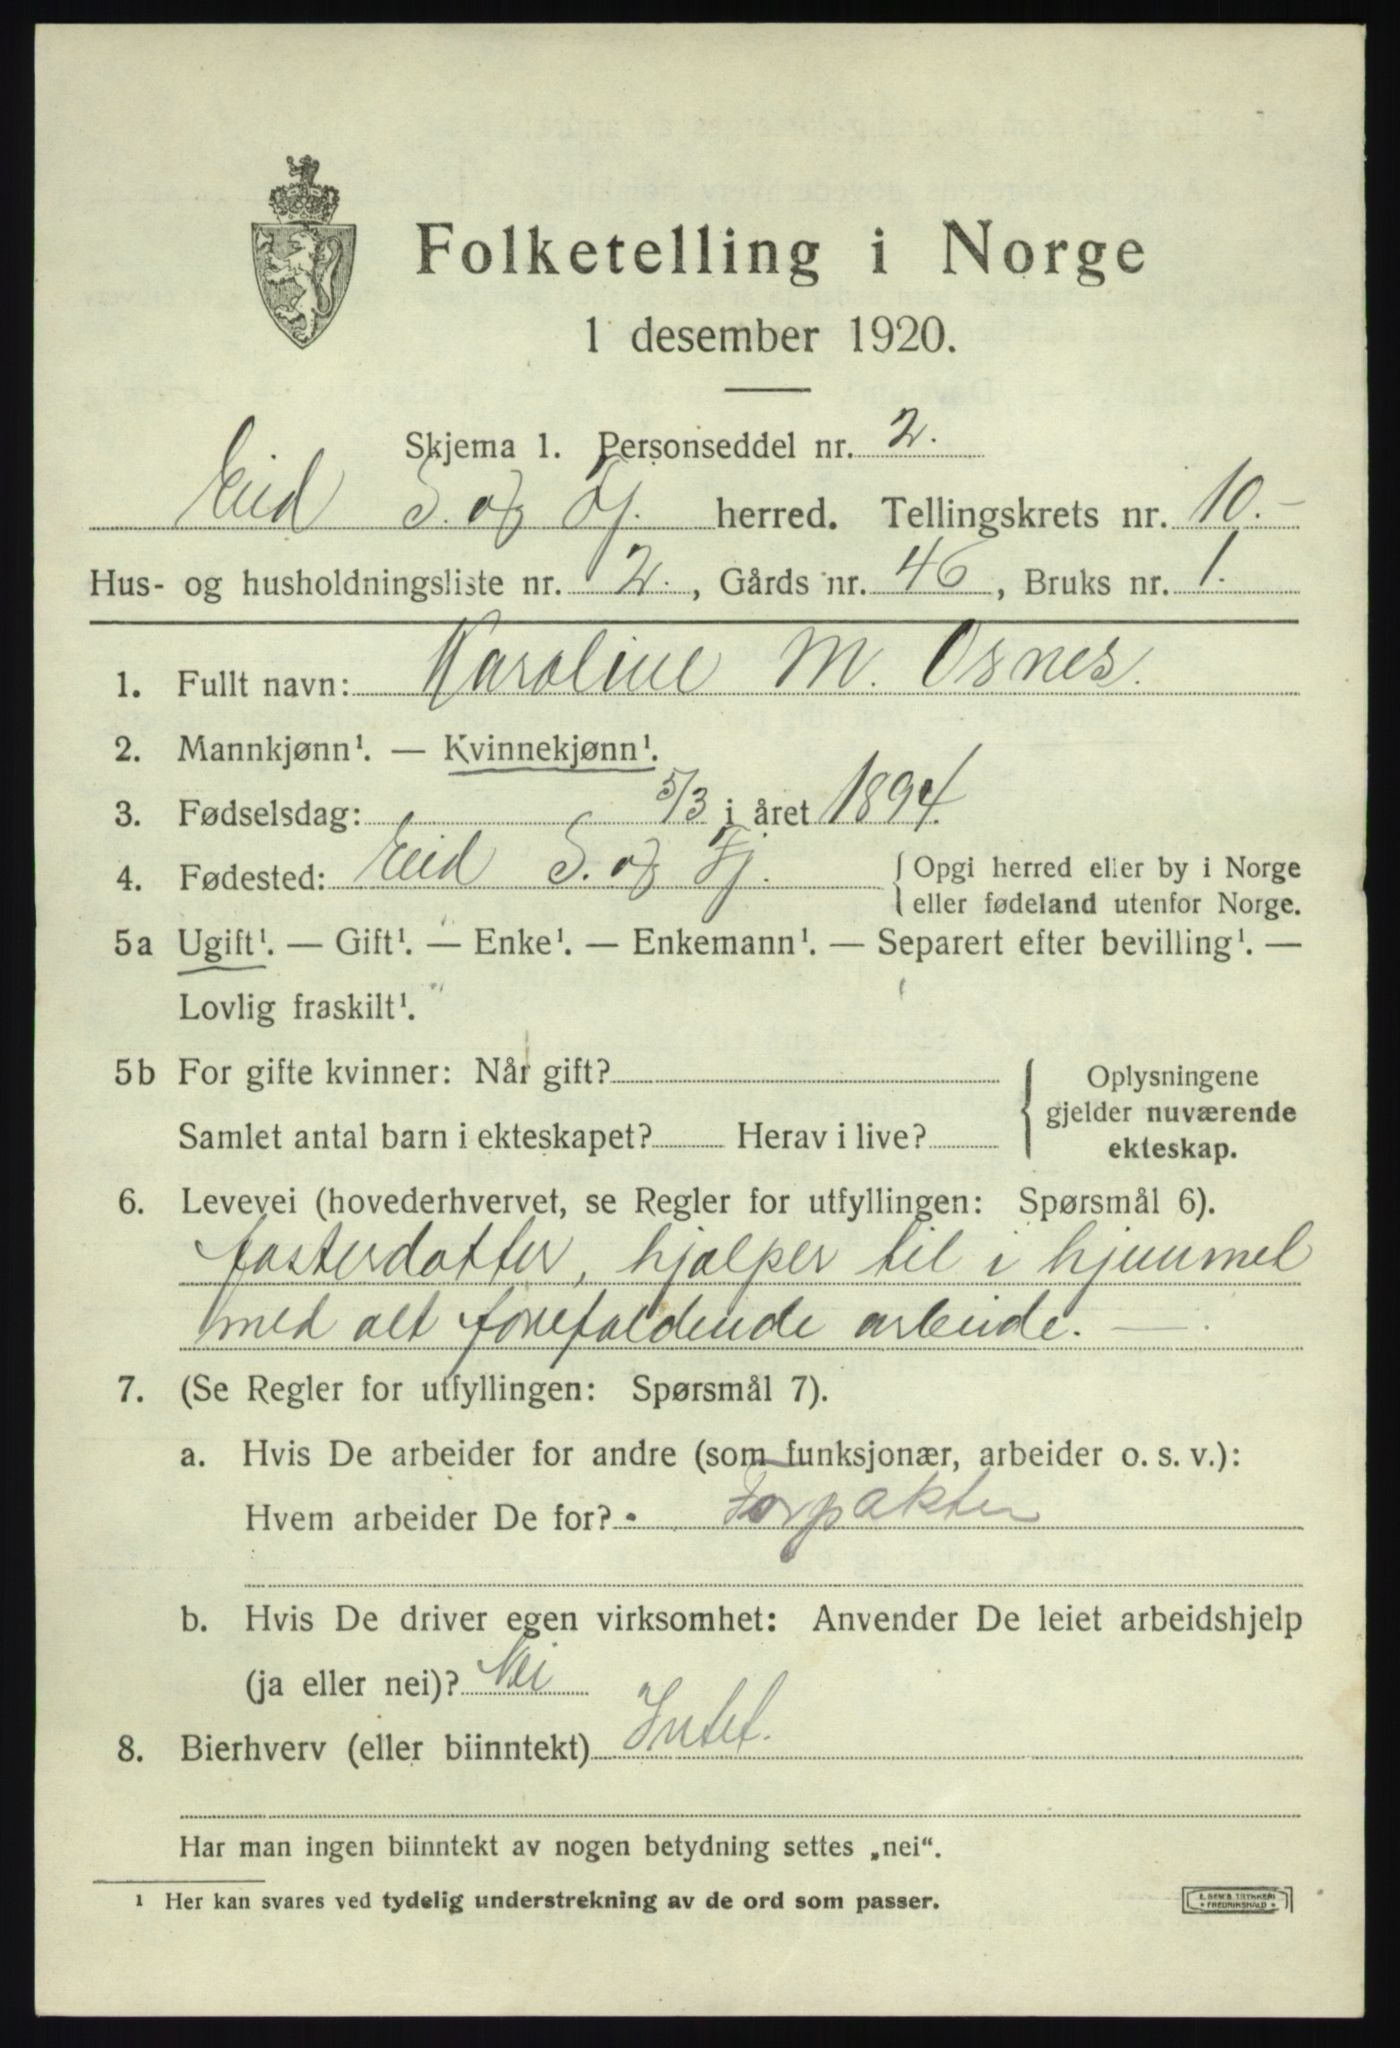 Folketelling i Norge
1 desember 1920.
Skjema 1. Personseddel nr. 2.
Eid S. og Fj. herred. Tellingskrets nr. 10.-
Hus- og husholdningsliste nr. 2., Gårds nr. 46, Bruks nr. 1.
1. Fullt navn: Karoline M. Osnes.
2. Mannkjønn¹. — Kvinnekjønn¹.
3. Fødselsdag: 5/3 i året 1894.
4. Fødested: Eid S. og Fj. { Opgi herred eller by i Norge
eller fødeland utenfor Norge.
5a Ugift¹. — Gift¹. — Enke¹. — Enkemann¹. — Separert efter bevilling¹. —
Lovlig fraskilt¹.
5b For gifte kvinner: Når gift?
Samlet antal barn i ekteskapet? Herav i live?
Oplysningene
gjelder nuværende
ekteskap.
6. Levevei (hovederhvervet, se Regler for utfyllingen: Spørsmål 6).
fosterdotter, hjælper til i hjemmet
med alt forefaldende arbeide. —
7. (Se Regler for utfyllingen: Spørsmål 7).
a. Hvis De arbeider for andre (som funksjonær, arbeider o. s. v.):
Hvem arbeider De for? Forpakter
b. Hvis De driver egen virksomhet: Anvender De leiet arbeidshjelp
(ja eller nei)? Nei
8. Bierhverv (eller biinntekt) Intet.
Har man ingen biinntekt av nogen betydning settes „nei“.
¹ Her kan svares ved tydelig understrekning av de ord som passer.
E. SEM'S TRYKKERI
* FREDRIKSHALD *